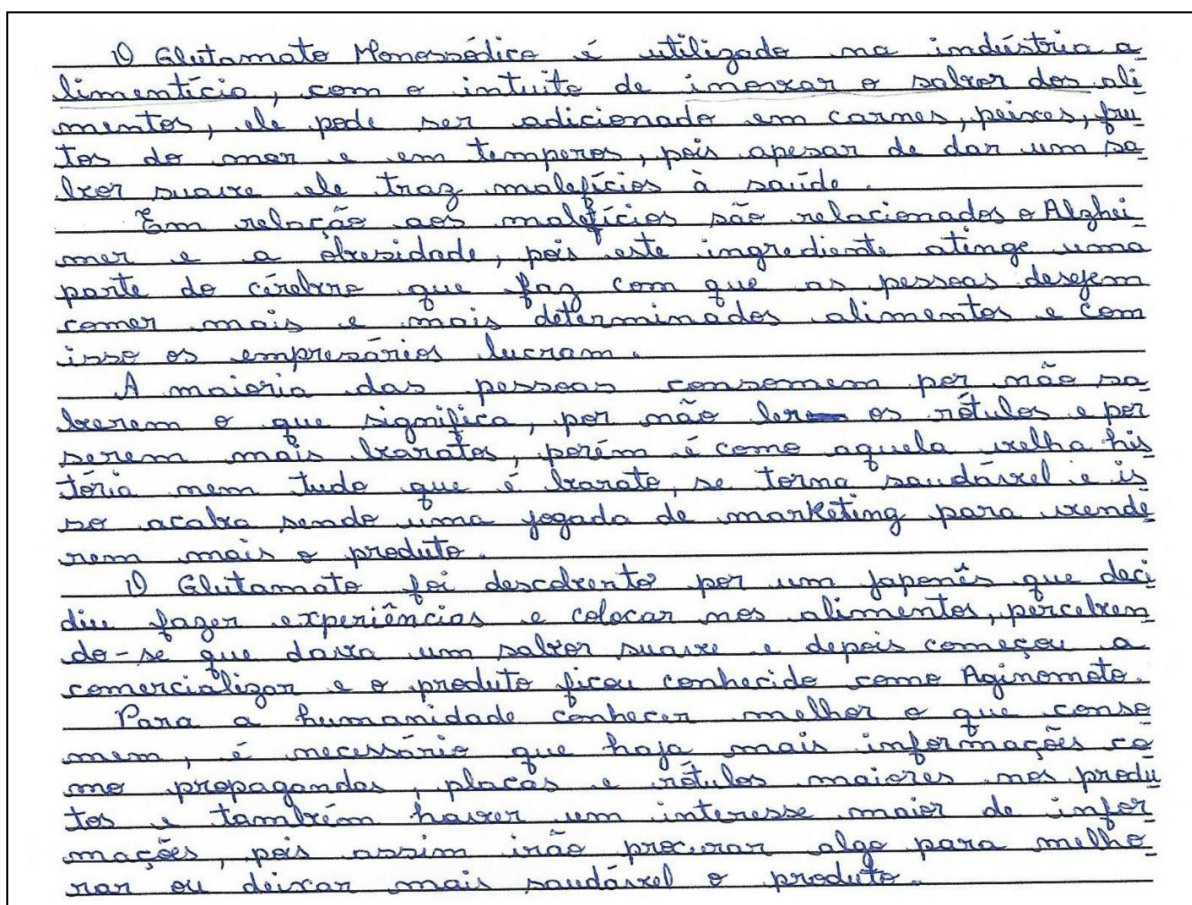 O Glutamato Monossódico é utilizado na indústria a
limentício, com o intuito de inovar o sabor dos ali
mentos, ele pode ser adicionado em carnes, peixes, fru
tos do mar e em temperos, pois apesar de dar um sa
bor suave ele traz malefícios à saúde.
Em relação aos malefícios são relacionados o Alzhei
mer e a obesidade, pois este ingrediente atinge uma
parte do cérebro que faz com que as pessoas desejem
comer mais e mais determinados alimentos e com
isso os empresários lucram.
A maioria das pessoas consomem por não sa
berem o que significa, por não ler os rótulos e por
serem mais baratos, porém é como aquela velha his
tória nem tudo que é barato, se torna saudável e is
so acaba sendo uma jogada de marketing para vende
rem mais o produto.
O Glutamato foi descoberto por um japonês que deci
diu fazer experiências e colocar nos alimentos, perceben
do-se que dava um sabor suave e depois começou a
comercializar e o produto ficou conhecido como Aginomoto.
Para a humanidade conhecer melhor o que conso
mem, é necessário que haja mais informações co
mo propagandas, placas e rótulos maiores nos produ
tos e também haver um interesse maior de infor
mações, pois assim irão procurar algo para melho
rar ou deixar mais saudável o produto.